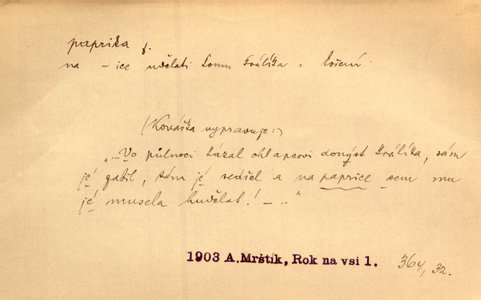 paprika f.
na -ice udělati komu králíka = koření
(Kovářka vypravuje:)
„...Vo půlnoci kázal ohlapcovi donýst králíka, sám
jé zabil, sám jé sedřel a na paprice sem mu
jé musela hudělat! - .."
1903 A. Mrštík, Rok na vsi 1. 364, 32.